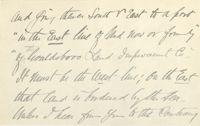 and going thence South & East to a post
"in the East line of land now or formerly
"of Wouldsboro Land Improvement Co."
It must be the West line, On the East
that land is bordered by the Sea.
Unless I hear from you to the Contrary